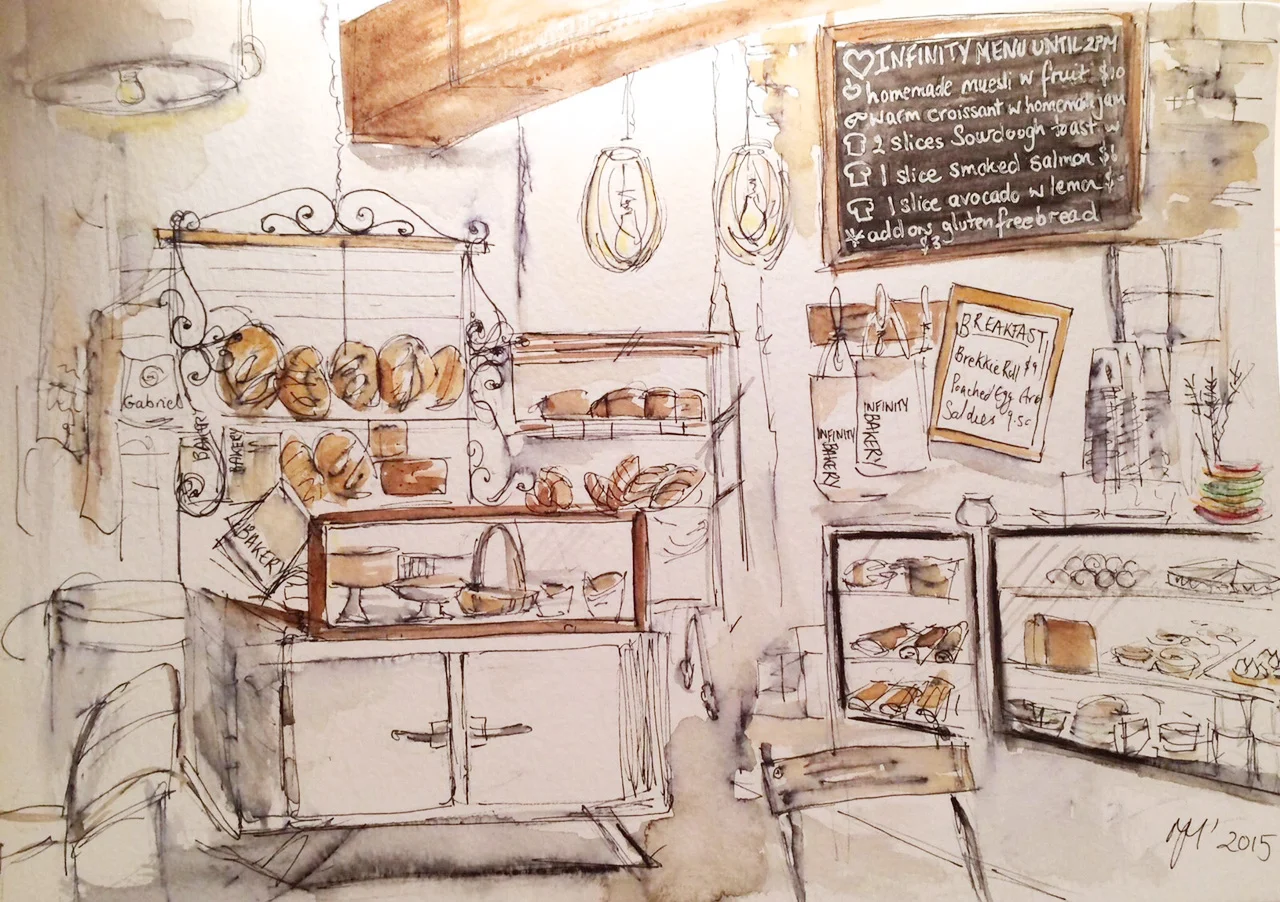 INFINITY MENU UNTIL 2PM
homemade muesli w fruit $10
warm croissant w homemade jam
2 slices Sourdough toast w
1 slice smoked salmon $6
1 slice avocado w lemon
add on gluten free bread
$3
BREAKFAST
Brekkie Roll $9
Poached Egg And
9.50
INFINITY
BAKERY
INFINITY
BAKERY
Gabriel
BAKERY
BAKERY
BAKERY
2015